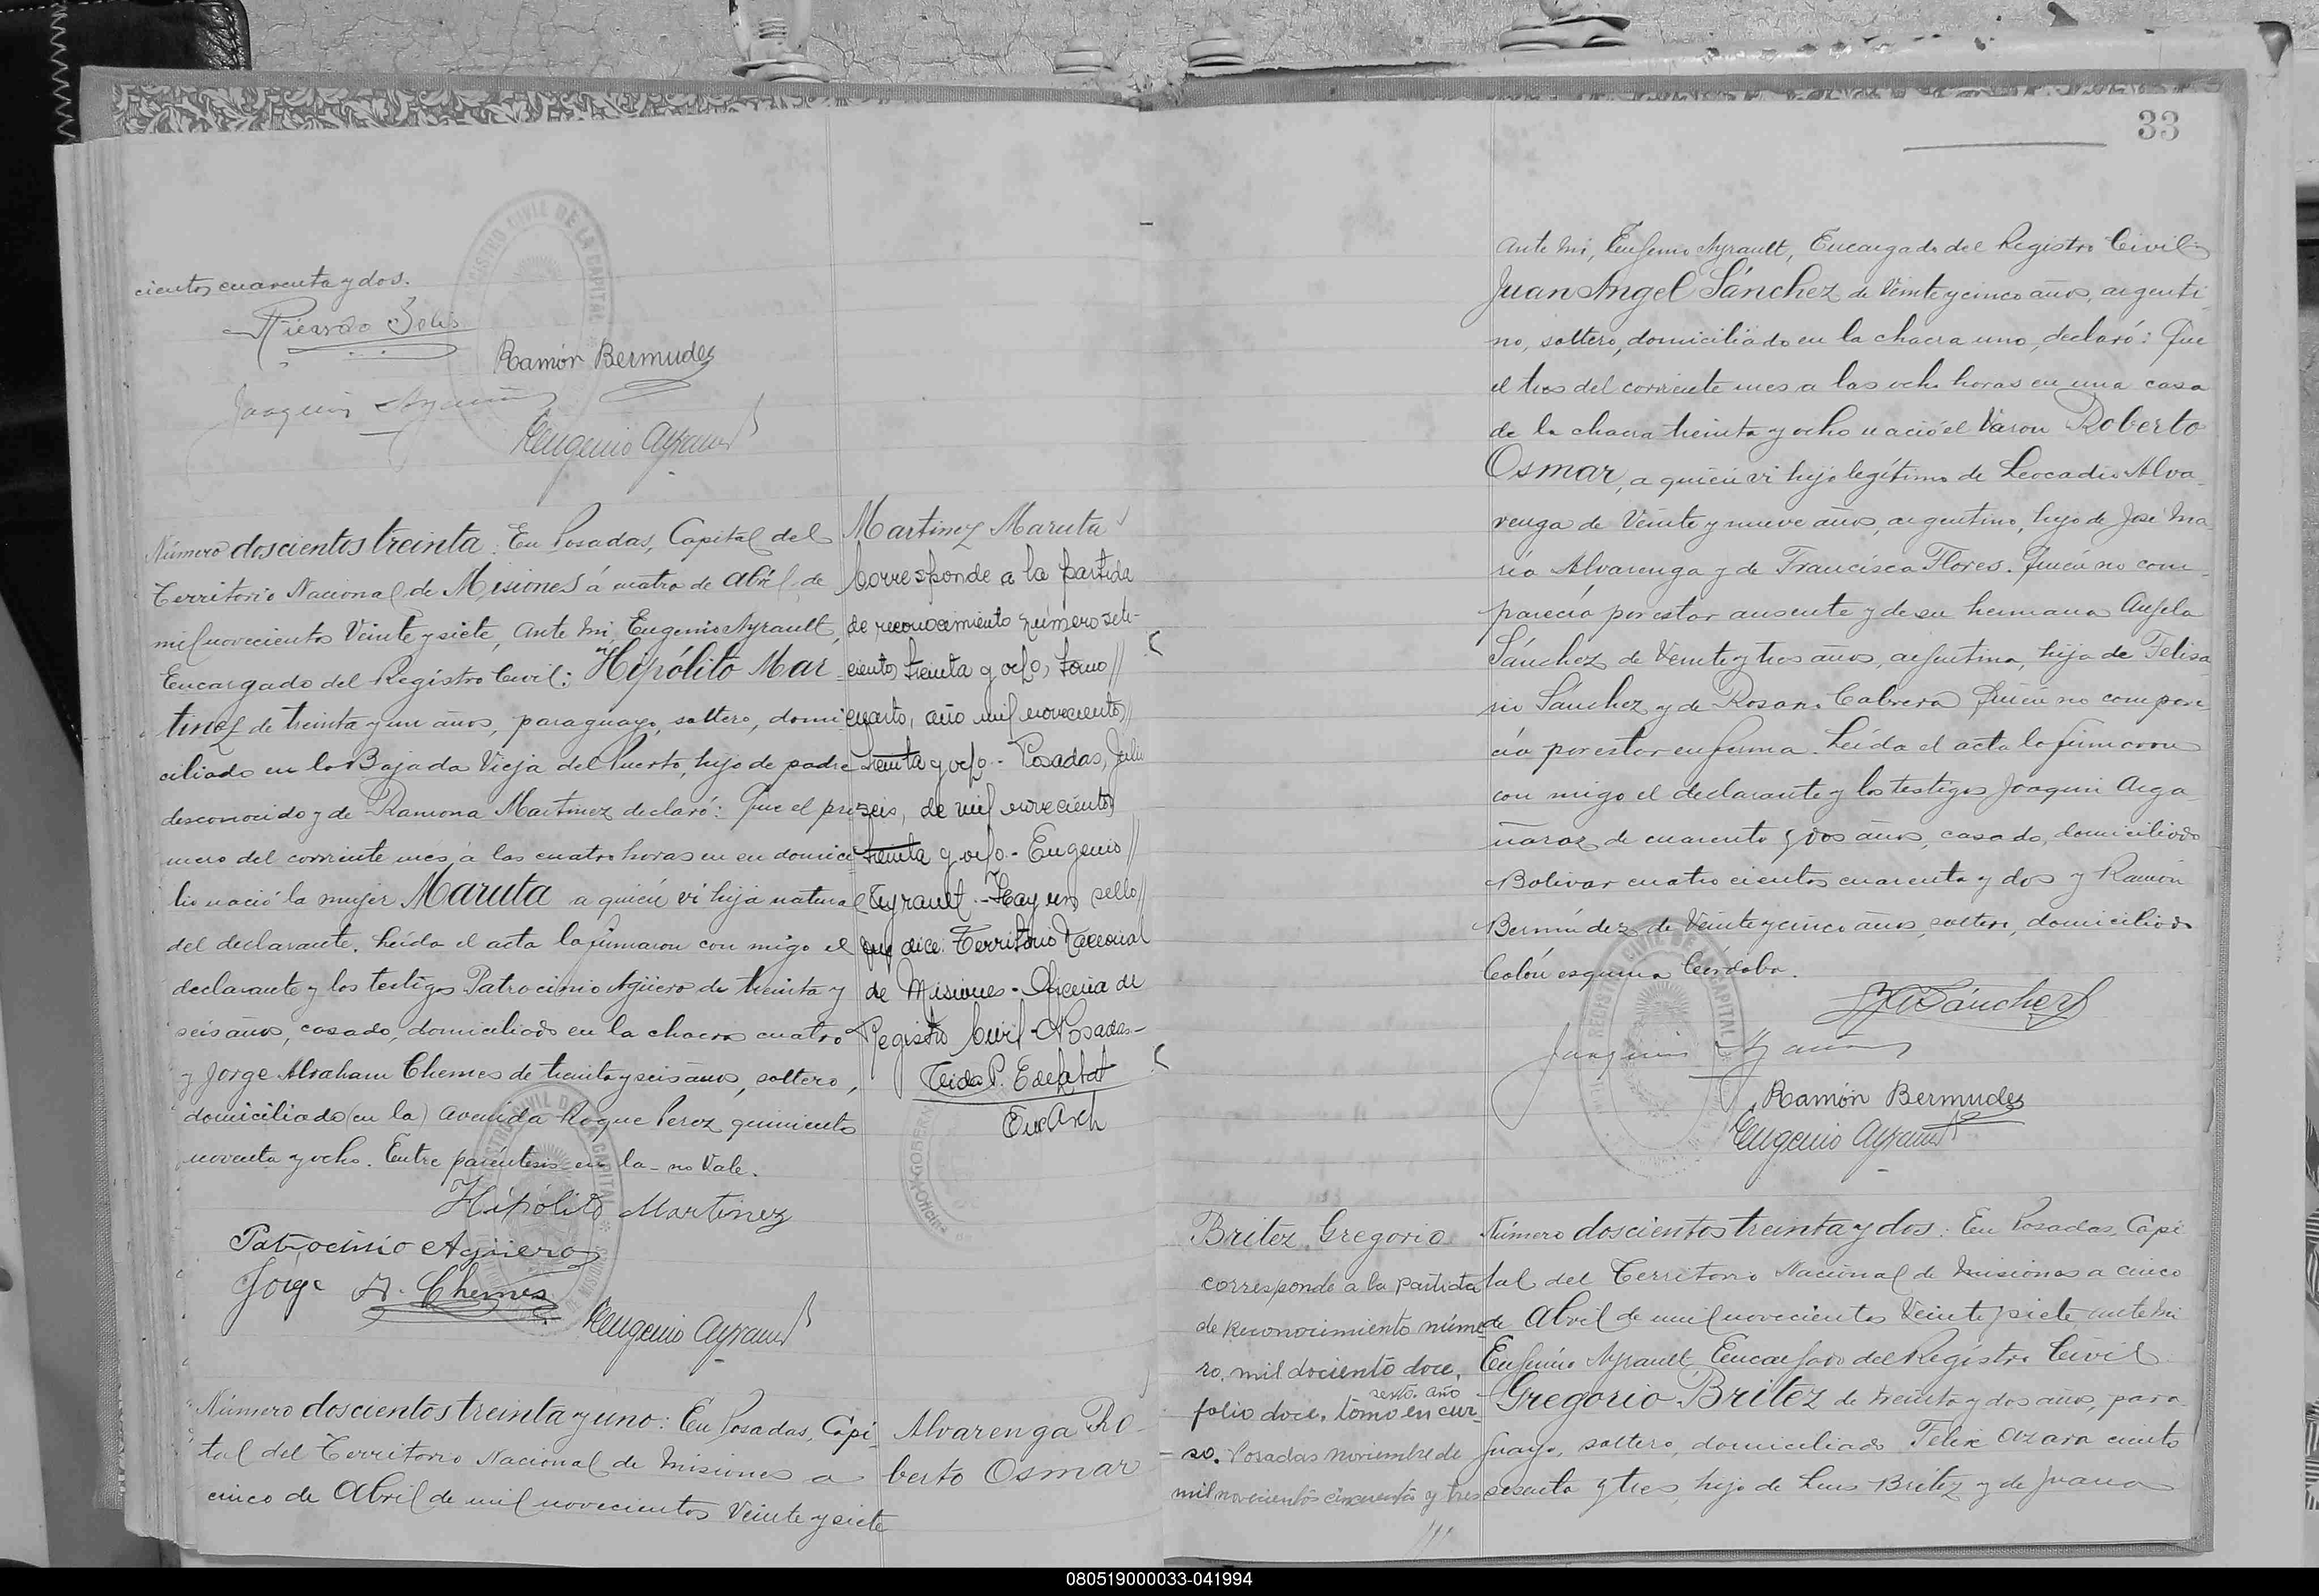 cientos cuarenta y dos.
Ricardo Solis
Ramón Bermudes
Joaquin
Eugenio Ayrault
Número doscientos treinta: En Posadas, Capital del
Territorio Nacional de Misiones á cuatro de Abril de
mil novecientos Veinte y siete, Ante mi, Eugenio Ayrault,
Encargado del Registro Civil: Hipólito Mar
tinez de treinta y un años, paraguayo, soltero, domi
ciliado en la Bajada Vieja del Puerto, hijo de padre
desconocido y de Ramona Martinez declaró: Que el pri
mero del corriente mes, a las cuatro horas en su domici
lio nació la mujer Maruta a quién vi hija natural
del declarante. Leída el acta la firmaron con migo el
declarante y los testigos Patrocinio Agüero de treinta y
seis años, casado, domiciliado en la chacra cuatro
y Jorge Abraham Chemes de treinta y seis años, soltero,
domiciliado (en la) Avenida Roque Perez quinientos
noventa y ocho. Entre paréntesis en la - no Vale.
Hipólito Martinez
Patrocinio Agüero
Jorge A. Chemes
Eugenio Ayrault
Martinez Maruta
Corresponde a la partida
de reconocimiento número sete-
cientos treinta y ocho, tomo //
cuarto, año mil novecientos //
treinta y ocho - Posadas, Julio
seis, de mil novecientos
treinta y ocho - Eugenio //
Ayrault - Hay un sello //
que dice: Territorio Nacional
de Misiones - Oficina de
Registro Civil - Posadas -
Enc Arch
Número doscientos treinta y uno: En Posadas, Capi
tal del Territorio Nacional de Misiones a
cinco de Abril de mil novecientos Veinte y siete
Alvarenga Ro-
berto Osmar
33
Ante mi, Eugenio Ayrault, Encargado del Registro Civil
Juan Angel Sánchez de Veinte y cinco años, argenti
no, soltero, domiciliado en la chacra uno, declaró: Que
el tres del corriente mes a las ocho horas en una casa
de la chacra treinta y ocho nació el Varon Roberto
Osmar, a quién vi hijo legítimo de Leocadio Alva
renga de Veinte y nueve años, argentino, hijo de José Ma
ria Alvarenga y de Francisca Flores. Quién no com
pareció por estar ausente y de su hermana Angela
Sánchez de Veinte y tres años, argentina, hija de Felisa
rio Sánchez y de Rosa Cabrera Quién no compare
ció por estar enferma. Leída el acta la firmaron
con migo el declarante y los testigos Joaquin Arga
ñaraz de cuarenta y dos años, casado, domiciliado
Bolivar cuatro cientos cuarenta y dos y Ramón
Bermúdez de Veinte y cinco años, soltero, domiciliado
Colón esquina Córdoba.
J A Sánchez
Joaquin
Ramón Bermudes
Eugenio Ayrault
Britez Gregorio
corresponde a la partida
de reconocimiento núme
ro, mil dociento doce,
sexto. año
folio doce, tomo en cur-
so. Posadas noviembre de
mil novecientos cincuenta y tres
Número doscientos treinta y dos: En Posadas, Capi
tal del Territorio Nacional de Misiones a cinco
de Abril de mil novecientos Veinte y siete, ante mi
Eugenio Ayrault, Encargado del Registro Civil
Gregorio Britez de treinta y dos años, para
guayo, soltero, domiciliado Felix Azara ciento
sesenta y tres, hijo de Luis Britez y de Juana
080519000033-041994